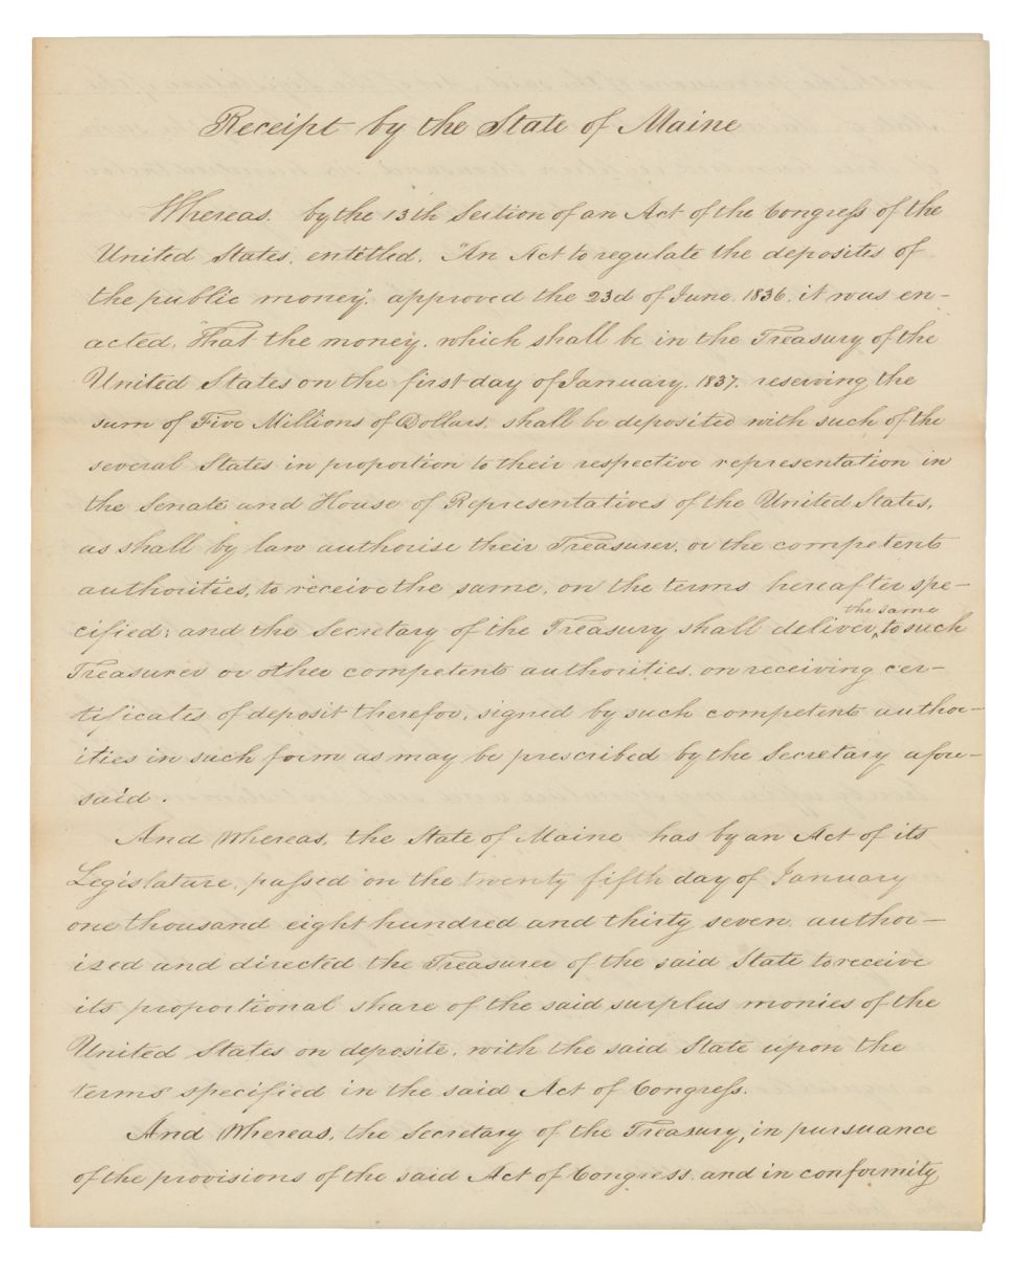 Receipt by the State of Maine
Whereas. by the 13th Section of an Act of the Congress of the
United States, entitled, "An Act to regulate the deposites of
the public money", approved the 23d of June 1836, it was en-
acted, "That the money, which shall be in the Treasury of the
United States on the first day of January, 1837. reserving the
sum of Five Millions of Dollars, shall be deposited with such of the
several States in proportion to their respective representation in
the Senate and House of Representatives of the United States,
as shall by law authorise their Treasurer, or the competent
authorities, to receive the same, on the terms hereafter spe-
the same
cified; and the Secretary of the Treasury shall deliver, to such
Treasurer or other competent authorities, on receiving cer-
tificates of deposit therefor, signed by such competent author-
ities in such form as may be prescribed by the Secretary afore-
said.
And Whereas, the State of Maine has by an Act of its
Legislature, passed on the twenty fifth day of January
one thousand eight hundred and thirty seven, author-
ized and directed the Treasurer of the said State to receive
its proportional share of the said surplus monies of the
United States on deposite, with the said State upon the
terms specified in the said Act of Congress.
And Whereas, the Secretary of the Treasury, in pursuance
of the provisions of the said Act of Congress, and in conformity